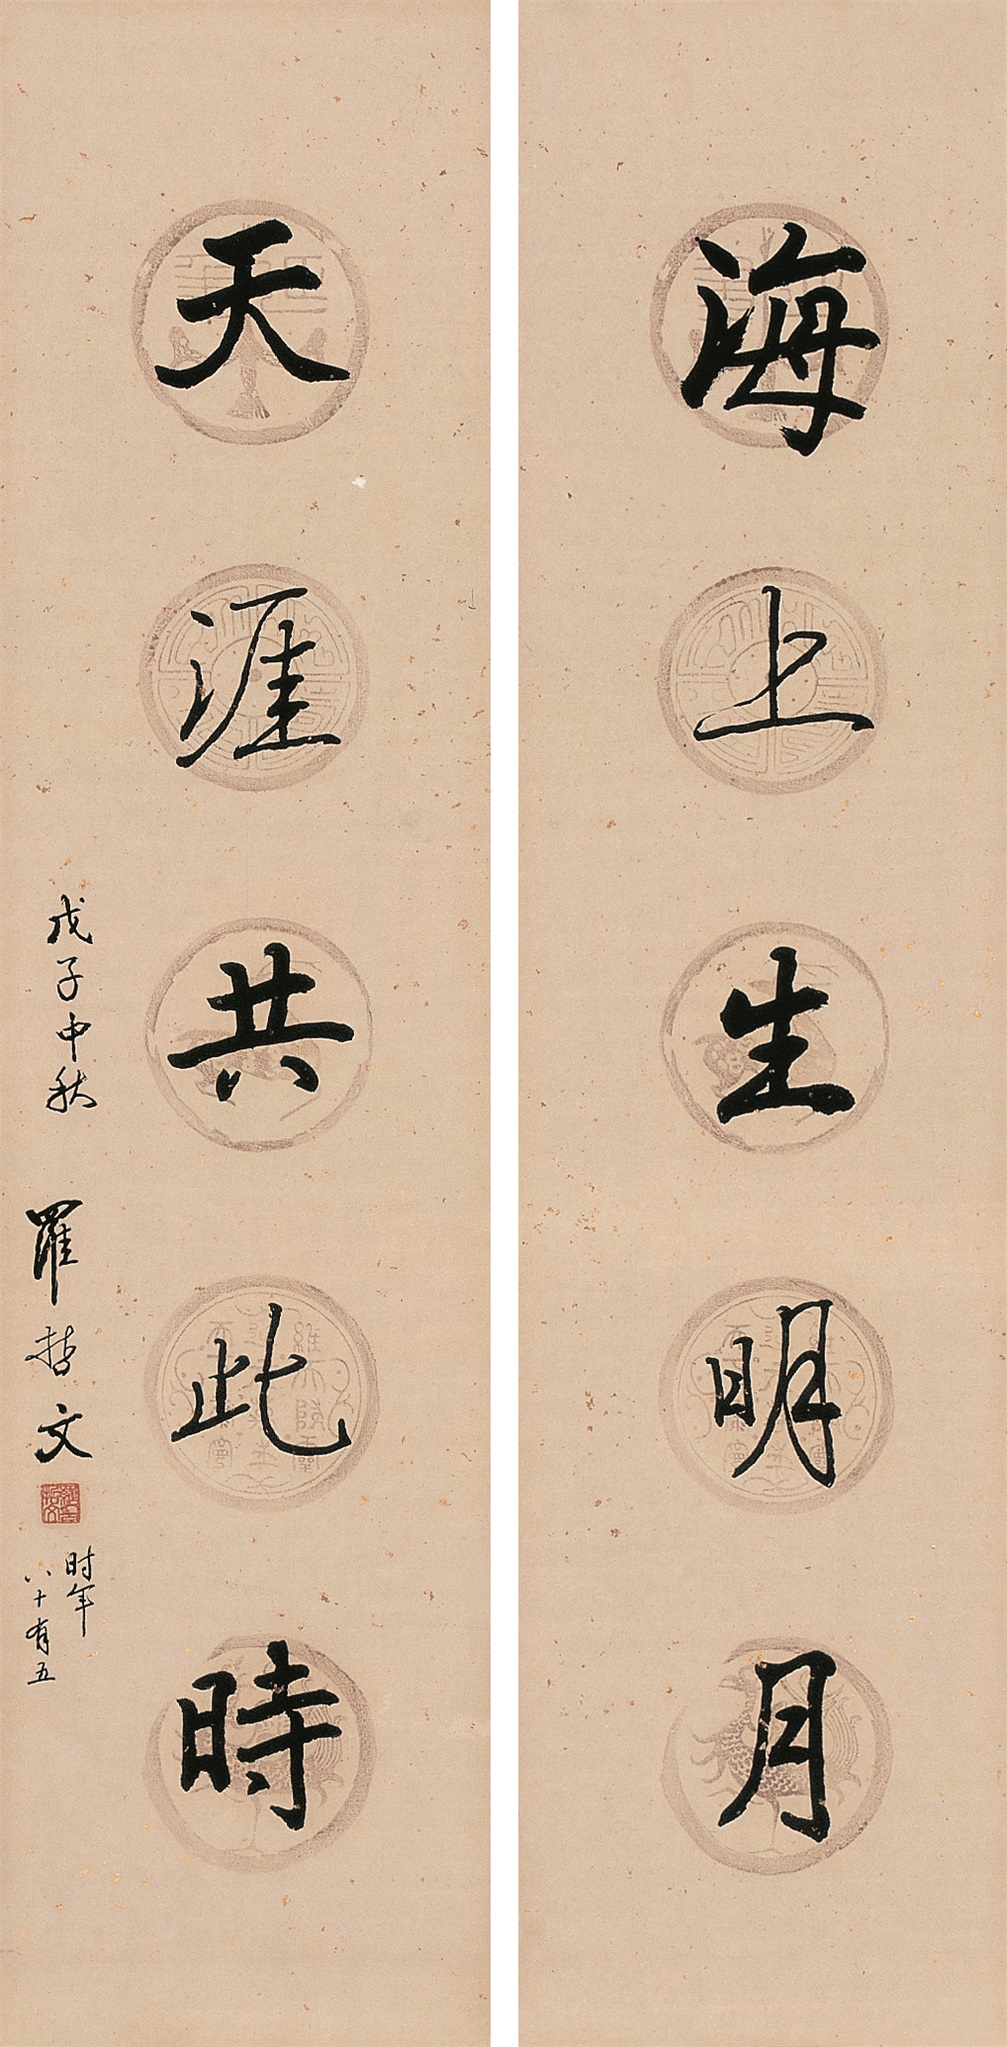 海上生明月
天涯共此時
戊子中秋
羅哲文
时年
八十有五